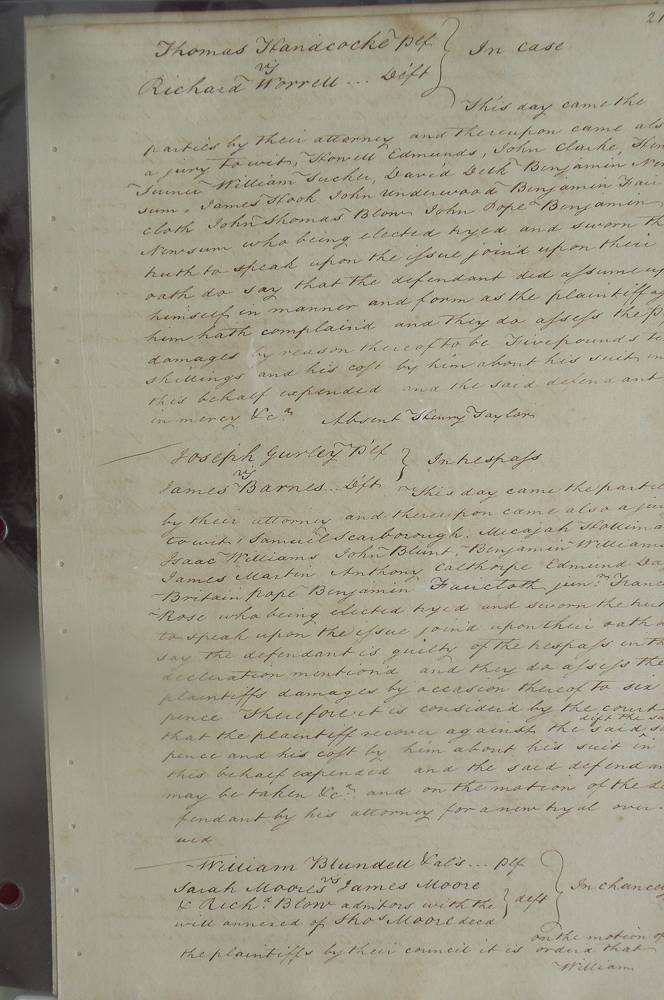 21
Thomas Handcocke Plf } In case
vs
Richard Worrell ... Deft
This day came the
parties by their attorney and thereupon came als
a jury to wit, Howell Edmunds, John Clarke, Hen
Turner William Tucker, David Delk Benjamin New
sum, James Hook John Underwood Benjamin Fair
cloth John Thomas Blow John Pope Benjamin
Newsum who being elected tryed and sworn th
truth to speak upon the issue join'd upon their
oath do say that the defendant did assume up
himself in manner and form as the plaintiff ag
him hath complain'd and they do assess the p
damages by reason thereof to be Five pounds te
shillings and his cost by him about his suit in
this behalf expended and the said defendant
in mercy &c.a Absent Henry Taylor
Joseph Gurley Plf } In trespass
vs
James Barnes ... Deft This day came the partie
by their attorney and thereupon came also a jur
to wit, Samuel Scarborough, Micajah Hollima
Isaac Williams John Blunt, Benjamin Williams
James Martin Anthony Calthorpe Edmund Da
Britain Pope Benjamin Faircloth jun.r Franc
Rose who being elected tryed and sworn the trut
to speak upon the issue join'd upon their oath d
say the defendant is guilty of the trespass in th
decleration mention'd and they do assess the
plaintiffs damages by occasion thereof to six
pence Therefore it is consider'd by the court
that the plaintiff recover against the said
deft the sa
pence and his cost by him about his suit in
this behalf expended and the said defendan
may be taken &c.a and on the motion of the de
fendant by his attorney for a new tryal over
uld
William Blundell & als ... Plf } In chancey
vs
Sarah Moore James Moore
& Rich.d Blow admitors with the } deft
will annexed of Tho.s Moore decd
on the motion of
the plaintiffs by their council it is orderd that
William